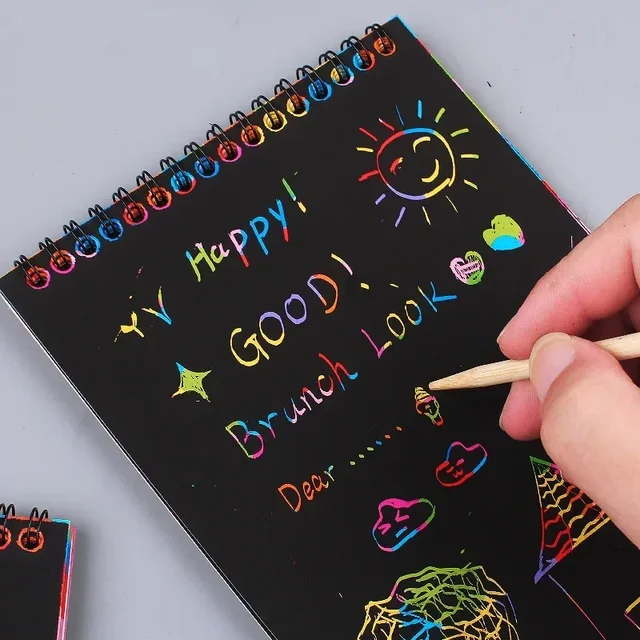 Happy!
GOOD!
Brunch LOOK
Dear.......